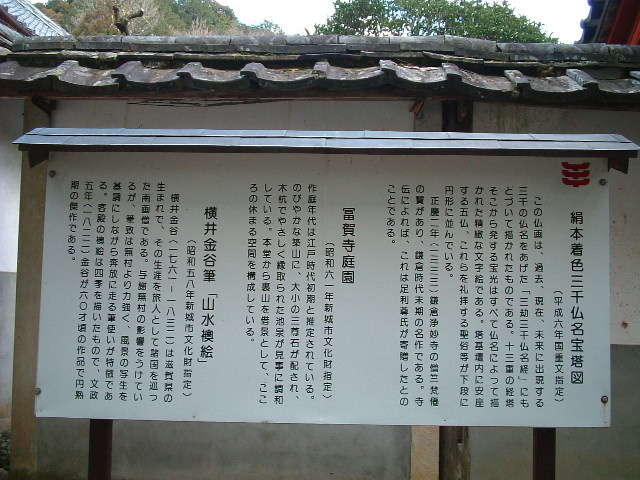 絹本着色三千仏名宝塔図
（平成六年国重文指定）
この仏画は、過去、現在、未来に出現する
三千の仏名をあげた「三劫三千仏名経」にも
とづいて描かれたものである。十三重の経塔
そこから発する宝光はすべて仏名によって描
かれた精緻な文字絵である。塔基壇内に安座
する五仏、これらを礼拝する聖俗等が下段に
円形に並んでいる。
正慶二年（一三三三）鎌倉浄妙寺の僧三梵倦
の賛があり、鎌倉時代末期の名作である。寺
伝によれば、これは足利尊氏が寄贈したとの
ことである。
冨賀寺庭園
（昭和六一年新城市文化財指定）
作庭年代は江戸時代初期と推定されている。
のびやかな築山に、大小の三尊石が配され、
木杭でやさしく縁取られた池泉が見事に調和
している。本堂から裏山を借景として、ここ
ろの休まる空間を構成している。
横井金谷筆「山水襖絵」
（昭和五八年新城市文化財指定）
横井金谷（一七六一ー一八三二）は滋賀県の
生まれで、その生涯を旅人として諸国を巡っ
た南画僧である。与謝蕪村の影響をうけてい
るが、筆致は蕪村より力強く、風景の写生を
基調にしながら奔放に走る筆使いが特徴であ
る。客殿の襖絵は四季を描いたもので、文政
五年（一八二二）金谷が六〇才頃の作品で円熟
期の傑作である。